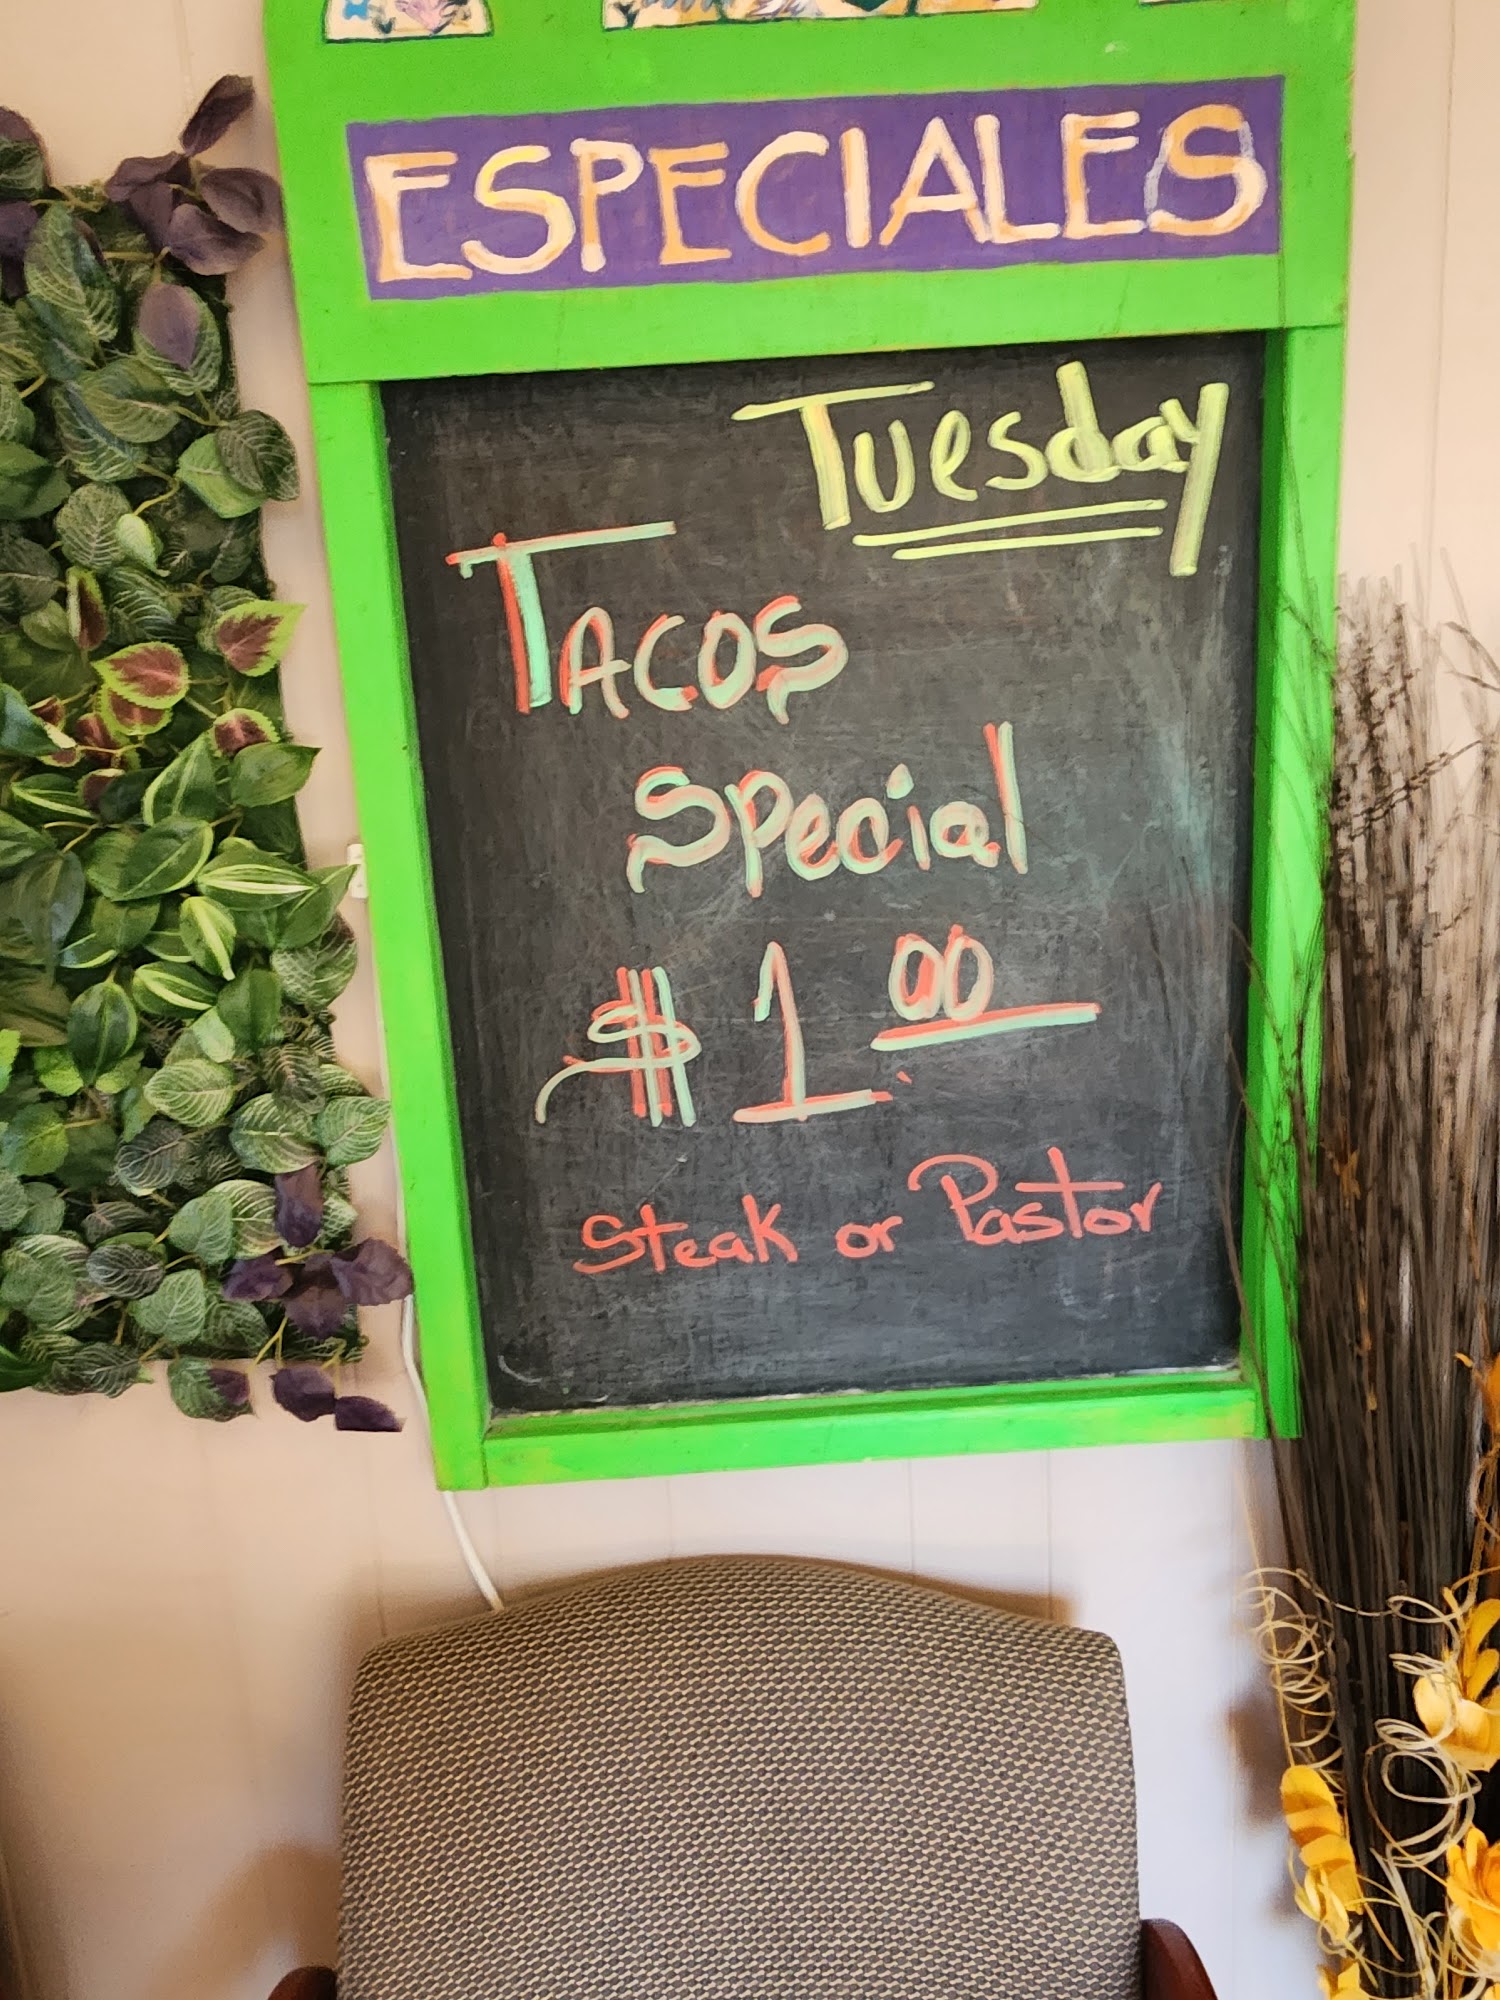 ESPECIALES
Tuesday
TACOS
Special
$1.00
Steak or Pastor